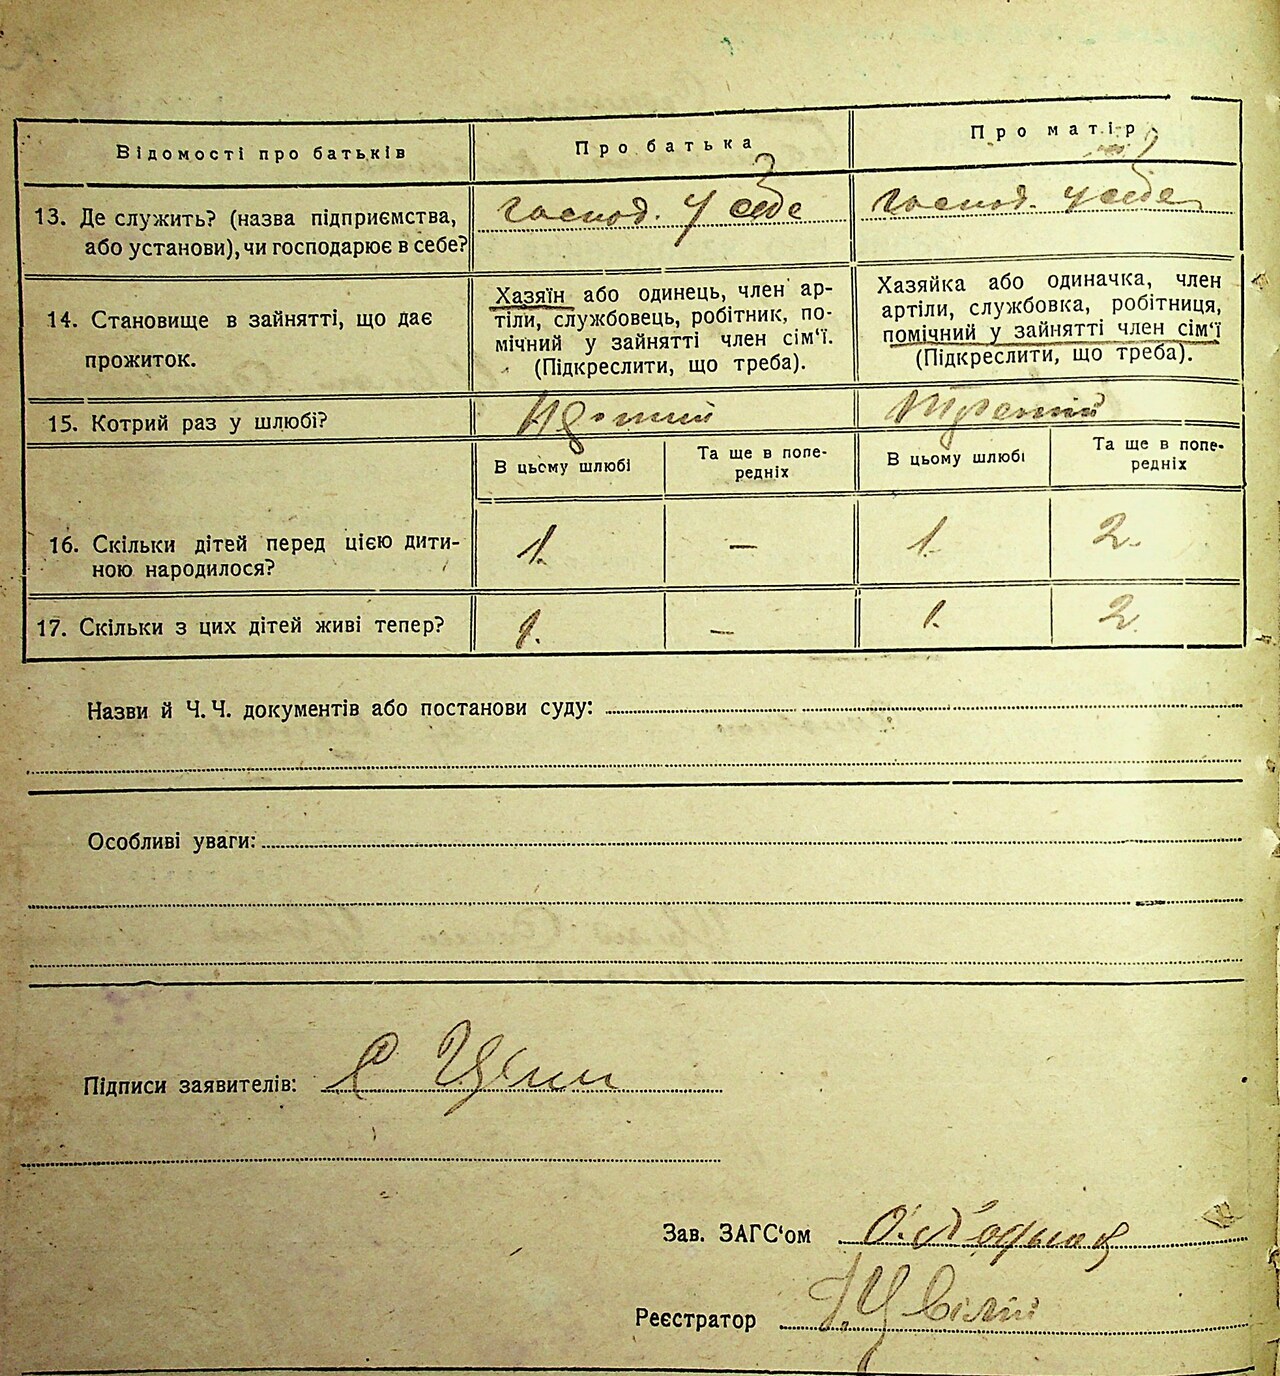 Відомості про батьків
Про батька
Про матір
13. Де служить? (назва підприємства,
або установи), чи господарює в себе?
господ. у себе
господ. у себе
14. Становище в зайнятті, що дає
прожиток.
Хазяїн або одинець, член ар-
тіли, службовець, робітник, по-
мічний у зайнятті член сім'ї.
(Підкреслити, що треба).
Хазяйка або одиначка, член
артіли, службовка, робітниця,
помічний у зайнятті член сім'ї
(Підкреслити, що треба).
15. Котрий раз у шлюбі?
В цьому шлюбі
Та ще в попе-
редніх
В цьому шлюбі
Та ще в попе-
редніх
16. Скільки дітей перед цією дити-
ною народилося?
1. – 1. 2.
17. Скільки з цих дітей живі тепер?
1. – 1. 2
Назви й Ч. Ч. документів або постанови суду:
Особливі уваги:
Підписи заявителів:
Зав. ЗАГС'ом
Реєстратор